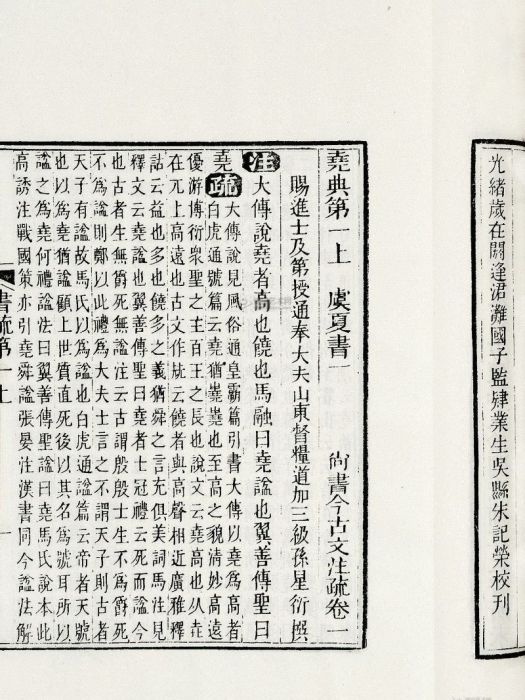 光緒歲在閼逢涒灘國子監肄業生吳縣朱記榮校刊
堯典第一上 虞夏書一 尚書今古文注疏卷一
賜進士及第授通奉大夫山東督糧道加三級孫星衍撰
注 大傳說堯者高也饒也馬融曰堯諡也翼善傳聖曰
堯 疏 大傳說見風俗通皇霸篇引書大傳以堯爲高者
白虎通號篇云堯猶嶢嶢也至高之貌清妙高遠
優游博衍衆聖之主百王之長也說文云堯高也从垚
在兀上高遠也古文作云饒者與高聲相近廣雅釋
詁云益也多也饒多之義猶舜之言充俱美詞馬注見
釋文云堯諡也翼善傳聖曰堯者士冠禮云死而諡今
也古者生無爵死無諡注云古謂殷殷士生不爲爵死
不爲諡則鄭以此禮爲大夫士言之不謂天子則古者
天子有諡故馬氏以爲諡也白虎通諡篇云帝者天號
也以爲堯猶諡顧上世質直死後以其名爲號耳所以
諡之爲堯何禮諡法曰翼善傳聖諡曰堯馬氏說本此
高誘注戰國策亦引堯舜諡張晏注漢書同今諡法解
書疏第一上 一